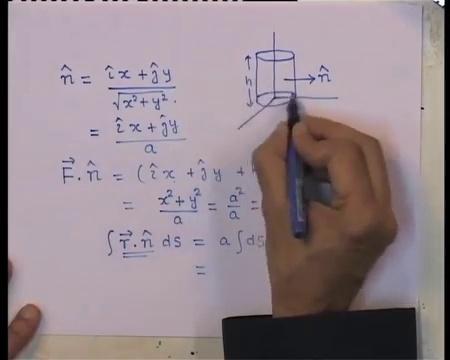 n̂ = (î x + ĵ y) / √(x² + y²).
= (î x + ĵ y) / a
F⃗ . n̂ = ( î x + ĵ y +
= (x² + y²) / a = a² / a =
∫ r⃗ . n̂ ds = a ∫ ds
=
h
n̂